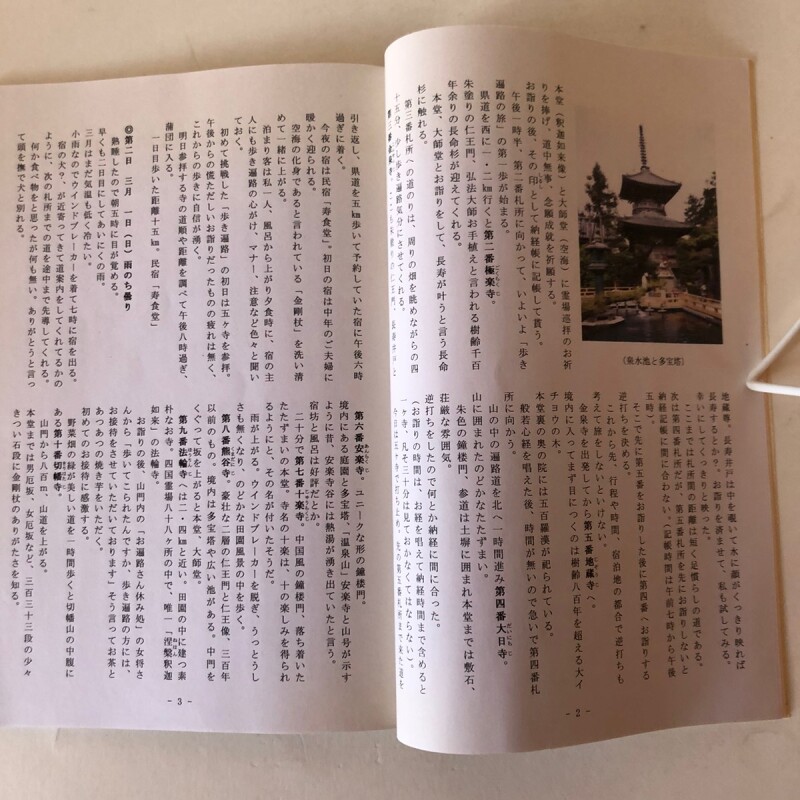 (泉水池と多宝塔)
本堂(釈迦如来像)と大師堂(空海)に霊場巡拝のお祈
りを捧げ、道中無事、念願成就を祈願する。
お詣りの後、その印として納経帳に記帳して貰う。
午後一時半、第二番札所に向かって、いよいよ「歩き
遍路の旅」の第一歩が始まる。
県道を西に一・二㎞行くと第二番極楽寺。
朱塗りの仁王門、弘法大師お手植えと言われる樹齢千百
年余りの長命杉が迎えてくれる。
本堂、大師堂とお詣りをして、長寿が叶うと言う長命
杉に触れる。
第三番札所への道のりは、周りの畑を眺めながらの四
十五分、少し歩き遍路気分にさせてくれる。
地蔵尊。長寿井戸は中を覗いて水に顔がくっきり映れば
長寿するとか?お詣りを済ませて、私も試してみる。
幸いにしてくっきりと映った。
ここまでは札所間の距離は短く足慣らしの道である。
次は第四番札所だが、第五番札所を先にお詣りしないと
納経記帳時間に合わない。(記帳時間は午前七時から午後
五時)。
そこで先に第五番をお詣りした後に第四番へお詣りする
逆打ちを決める。
これから先、行程や時間、宿泊地の都合で逆打ちも
考えて旅をしないといけない。
金泉寺を出発してから第五番地蔵寺へ。
境内に入ってまず目につくのは樹齢八百年を超える大イ
チョウの木。
本堂裏の奥の院には五百羅漢が祀られている。
般若心経を唱えた後、時間が無いので急いで第四番札
所に向かう。
山の中の遍路道を北へ一時間進み第四番大日寺。
山に囲まれたのどかなたたずまい。
朱色の鐘楼門、参道は土塀に囲まれ本堂までは敷石、
荘厳な雰囲気。
逆打ちをしたので何とか納経時間に間に合った。
(お詣りの時間は、お経を唱えて納経時間まで含めると
一ヶ寺、凡そ三十分は見ておかなくてはならない)。
- 2 -
引き返し、県道を五㎞歩いて予約していた宿に午後六時
過ぎに着く。
今夜の宿は民宿「寿食堂」。初日の宿は中年のご夫婦に
暖かく迎られる。
空海の化身であると言われている「金剛杖」を洗い清
めて一緒に上がる。
泊まり客は私一人、風呂から上がり夕食時に、宿の主
人にも歩き遍路の心がけ、マナー、注意など色々と聞い
ておく。
初めて挑戦した「歩き遍路」の初日は五ヶ寺を参拝。
午後からの慌ただしいお詣りだったものの疲れは無く、
これからの歩きに自信が湧く。
明日参拝する寺の道順や距離を調べて午後八時過ぎ、
蒲団に入る。
一日目歩いた距離十五㎞。民宿「寿食堂」
◎第二日 三月 一日(日)雨のち曇り
熟睡したので朝五時に目が覚める。
早くも二日目にしてあいにくの雨。
三月はまだ気温も低く冷たい。
小雨なのでウインドブレーカーを着て七時に宿を出る。
宿の犬?、が近寄ってきて道案内をしてくれてるかの
ように、次の札所までの道を途中まで先導してくれる。
何か食べ物をと思ったが何も無い。ありがとうと言っ
て頭を撫で犬と別れる。
第六番安楽寺。ユニークな形の鐘楼門。
境内にある庭園と多宝塔、「温泉山」安楽寺と山号が示す
ように昔、安楽寺谷には熱湯が湧き出ていたと言う。
宿坊と風呂は好評だとか。
二十分で第七番十楽寺。中国風の鐘楼門、落ち着いた
たたずまいの本堂。寺名の十楽は、十の楽しみを得られ
るようにと、その名が付いたそうだ。
雨が上がる。ウインドブレーカーを脱ぎ、うっとうし
さも無くなり、のどかな田園風景の中を歩く。
第八番熊谷寺。豪壮な二層の仁王門と仁王像、三百年
以前のもの。境内は多宝塔や広い池がある。中門を
くぐって坂を上がると本堂、大師堂。
第九番法輪寺へは二・四㎞と近い。田園の中に建つ素
朴なお寺。四国霊場八十八ヶ所の中で、唯一「涅槃釈迦
如来」の法輪寺。
お詣りの後、山門内の「お遍路さん休み処」の女将さ
んから「歩いてこられたんですか、歩き遍路の方には、
お接待をさせていただいております」そう言ってお茶と
あつあつの焼き芋をいただく。
初めてのお接待に感激する。
野菜畑の緑が美しい道を一時間歩くと切幡山の中腹に
ある第十番切幡寺。
山門から八百m、山道を上がる。
本堂までは男厄坂、女厄坂など、三百三十三段の少々
きつい石段に金剛杖のありがたさを知る。
- 3 -